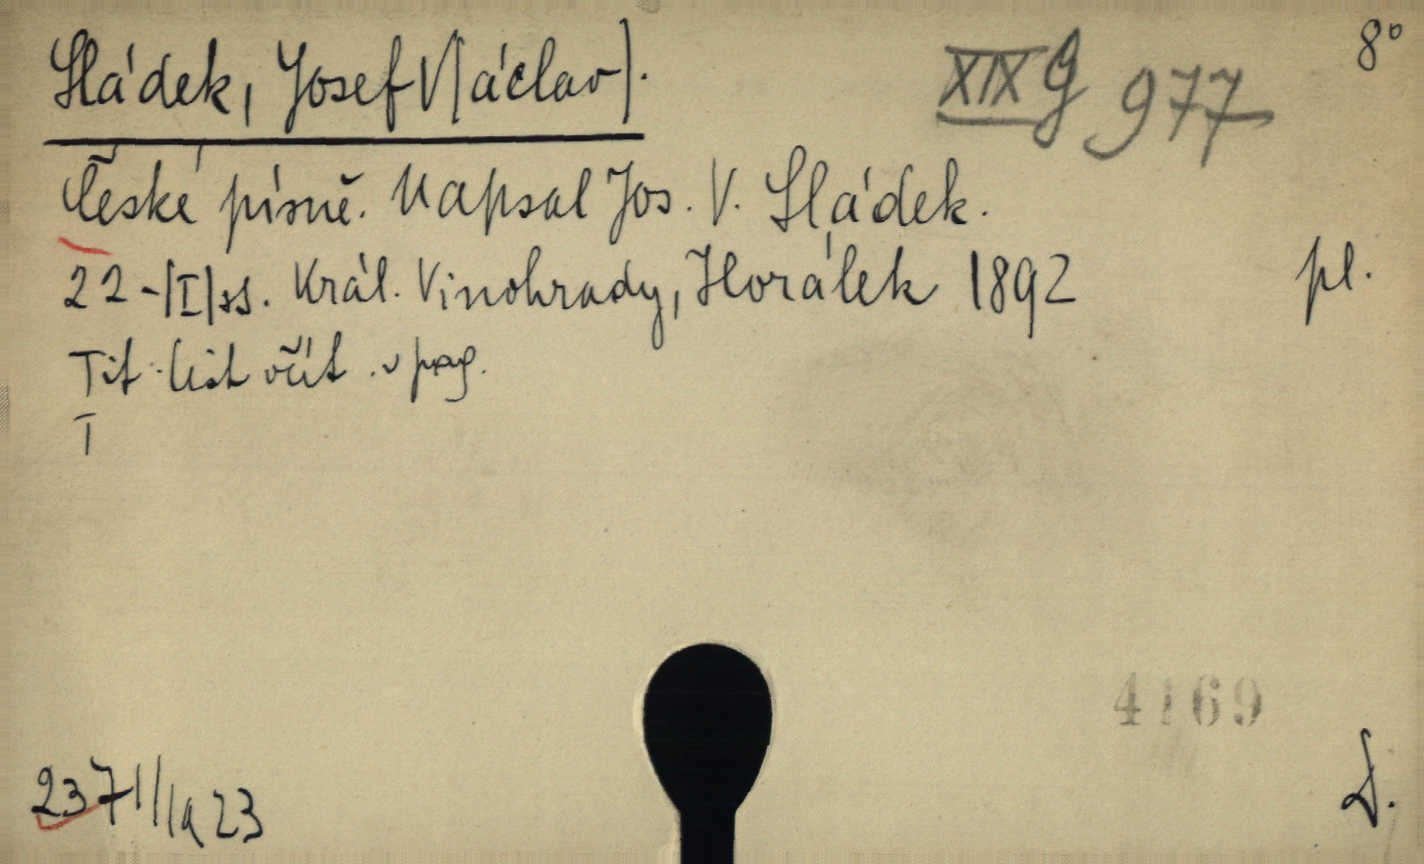 Sládek, Josef V[áclav].
XIX G 977
8°
České písně. Napsal Jos. V. Sládek.
22-[I] ss. Král. Vinohrady, Horálek 1892
pl.
Tit. list včít. v pag.
I
4169
2371/Ia 23